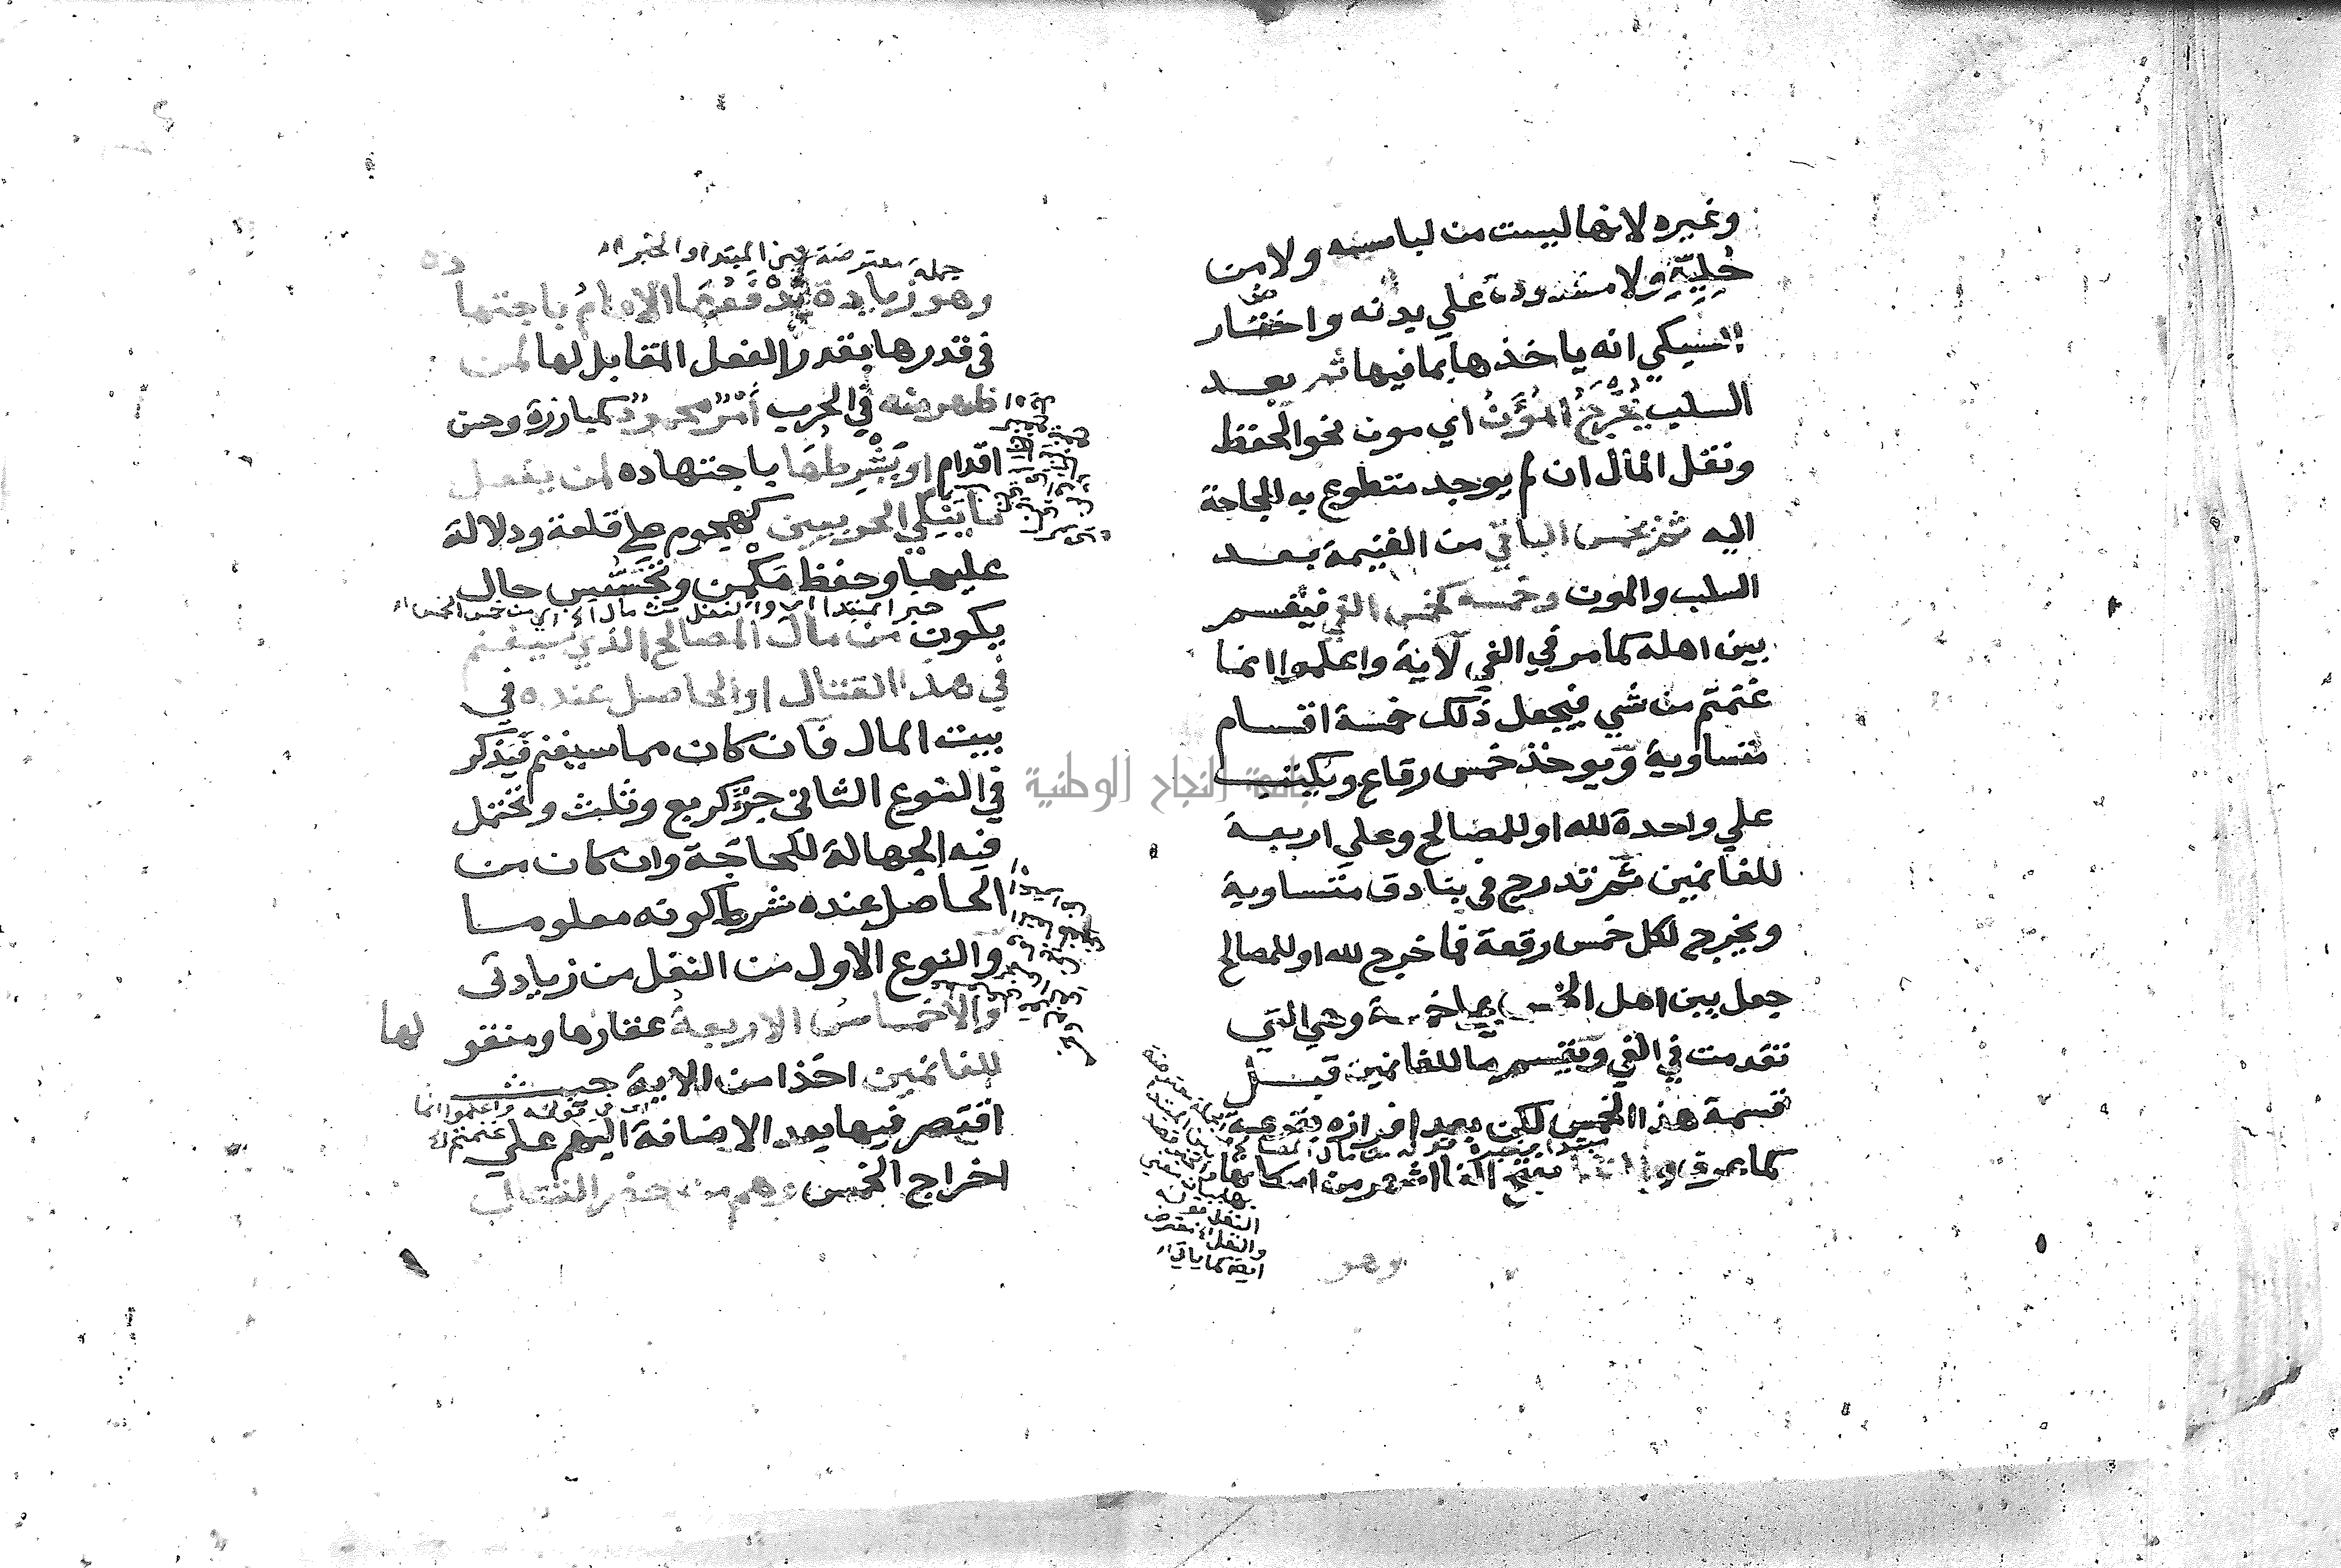 وغيره لانها ليست من لباسه ولا من
حليه ولا مشدودة علي بدنه واختار
السبكي انه ياخذها بما فيها ثم بعد
السلب تخرج المؤن اي مون نحو الحفظ
ونقل المال ان لم يوجد متطوع به للحاجة
اليه ثم يخمس الباقي من الغنيمة بعد
السلب والمون وخمسه كخمس الفي فيقسم
بين اهله كما مر في الفي لآية واعلموا انما
غنمتم من شي فيجعل ذلك خمسة اقسام
متساوية ويوخذ خمس رقاع ويكتب
علي واحدة لله او للمصالح وعلي اربعة
للغانمين ثم تدرج في بنادق متساوية
ويخرج لكل خمس رقعة فما خرج لله او للمصالح
جعل بين اهل الخمس علي خمسة وهي التي
تقدمت في الفي ويقسم ما للغانمين قبل
قسمة هذا الخمس لكن بعد افرازه بقرعة
مبتدا وخبره قوله من مال المصالح
كما عرف والنفل بفتح الفا اشهر من اسكانها
النفل
والنفل
كما ياتي
وهو
جامعة النجاح الوطنية
جملة معترضة بين المبتدا والخبر
وهو زيادة يدفعها الامام باجتهاد
في قدرها بقدر الفعل المقابل لها لمن
ظهر منه في الحرب امر محمود كمبارزة وحسن
اقدام او يشرطها باجتهاده لمن يفعل
ما ينكي الحربيين كهجوم علي قلعة ودلالة
عليها وحفظ مكمن وتجسس حال
خبر المبتدا الاول النفل من مال الخ اي من خمس الخمس
يكون من مال المصالح الذي سيغنم
في هذا القتال او الحاصل عنده في
بيت المال فان كان مما سيغنم فيذكر
في النوع الثاني جزؤ كربع وثلث وتحتمل
فيه الجهالة للحاجة وان كان من
الحاصل عنده شرط كونه معلوما
والنوع الاول من النفل من زيادتي
والاخماس الاربعة عقارها ومنقولها
للغانمين اخذا من الاية حيث
اي في قوله واعلموا انما غنمتم الخ
اقتصر فيها بعد الاضافة اليهم علي
اخراج الخمس وهم من حضر القتال